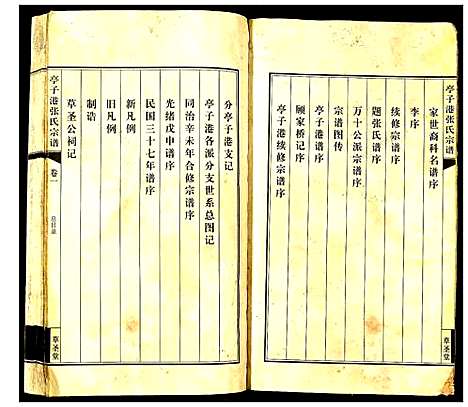 亭子港张氏宗谱
家世裔科名谱序
李序
续修宗谱序
题张氏谱序
万十公派宗谱序
宗谱图传
亭子港谱序
顾家桥记序
亭子港续修宗谱序
草圣堂
分亭子港支记
亭子港各派分支世系总图记
同治辛未年合修宗谱序
光绪戊申谱序
民国三十七年谱序
新凡例
旧凡例
制诰
草圣公祠记
亭子港张氏宗谱
卷一
总目录
草圣堂